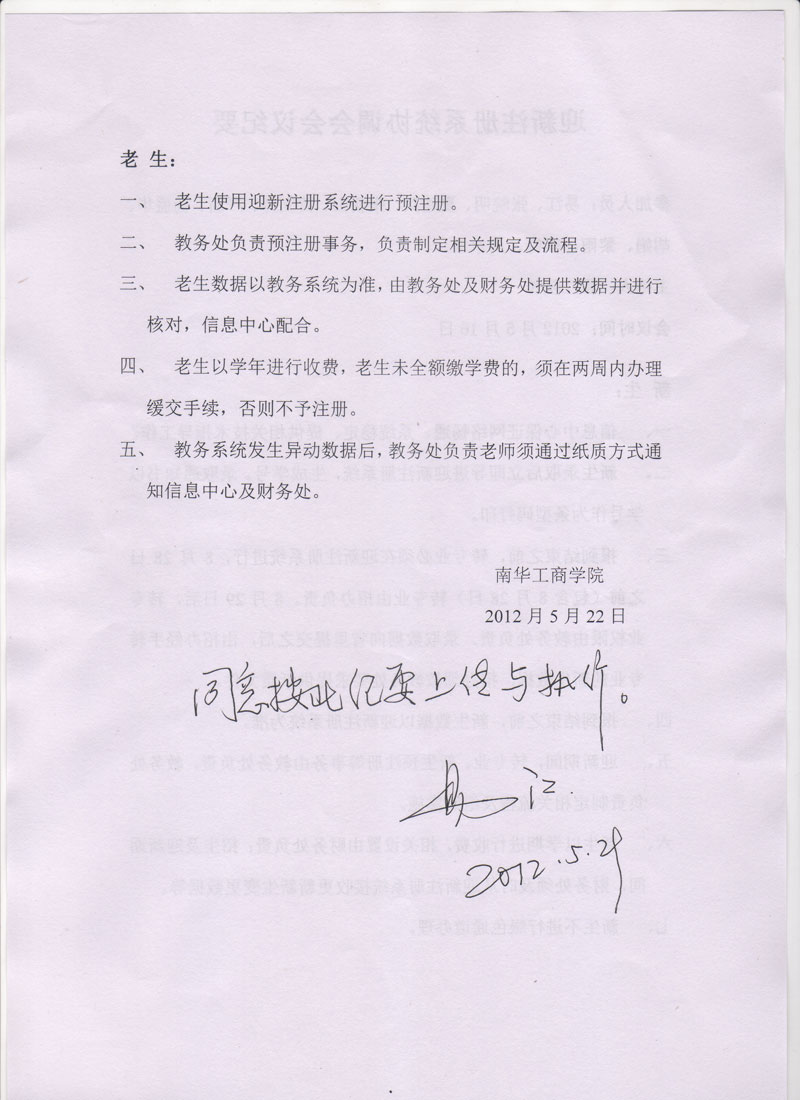 老 生：
一、 老生使用迎新注册系统进行预注册。
二、 教务处负责预注册事务，负责制定相关规定及流程。
三、 老生数据以教务系统为准，由教务处及财务处提供数据并进行
核对，信息中心配合。
四、 老生以学年进行收费，老生未全额缴学费的，须在两周内办理
缓交手续，否则不予注册。
五、 教务系统发生异动数据后，教务处负责老师须通过纸质方式通
知信息中心及财务处。
南华工商学院
2012 年 5 月 22 日
同意按此纪要上传与执行。
易江
2012.5.29